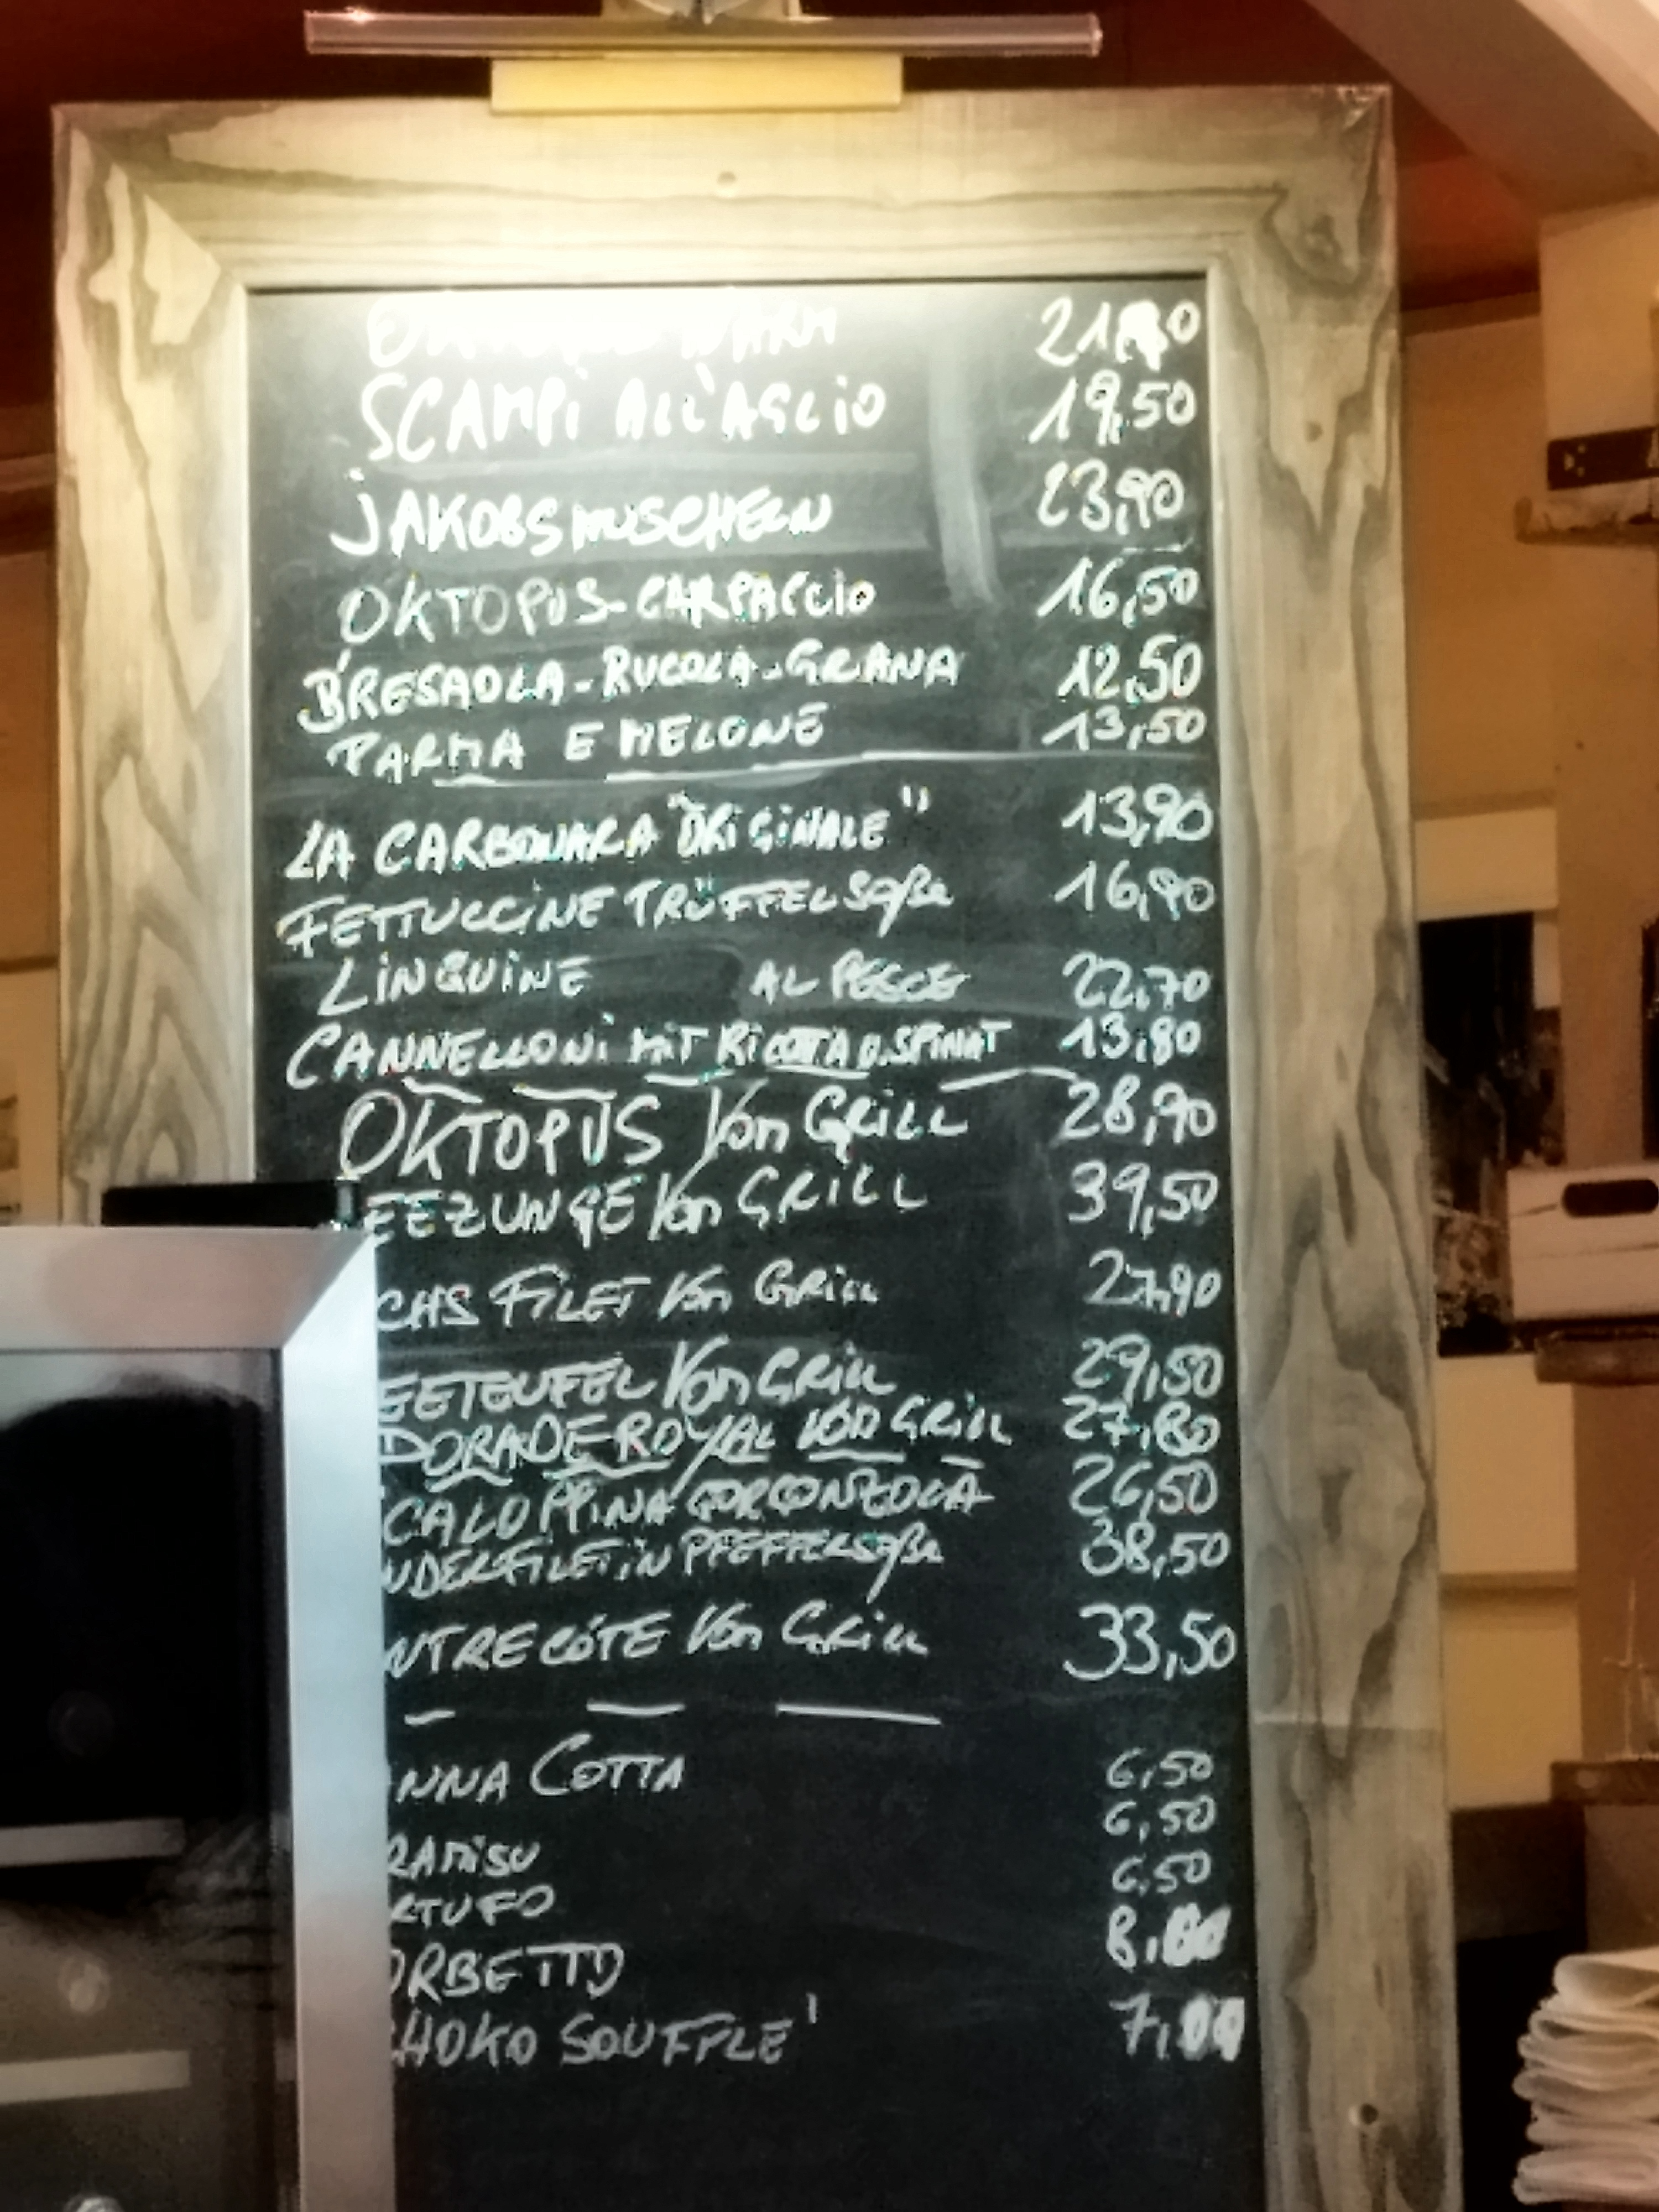 WARM
SCAMPi ALL'AGLiO 19,50
JAKOBSMUSCHELN 23,90
OKTOPUS-CARPACCiO 16,50
BRESAOLA-RUCOLA-GRANA 12,50
PARMA E MELONE 13,50
LA CARBONARA "ORiGiNALE" 13,90
FETTUCCiNE TRÜFFELSoße 16,90
LiNGUiNE AL PESCE 22,70
CANNELLONi MiT RiCOTTA U.SPiNAT 13,80
OKTOPUS Von GRiLL 28,90
EEZUNGE Von GRiLL 39,50
CHS FiLET Von GRiLL 27,90
EETEUFEL Von GRiLL 29,50
DORADE ROYAL VON GRiLL 27,80
CALOPPiNA GORGONZOLA 26,50
NDERFiLET iN PFEFFERSoße 38,50
NTRECÓTE Von GRiLL 33,50
NNA COTTA 6,50
6,50
RAMiSU
6,50
RTUFO
ORBETTO
HOKO SOUFFLE'